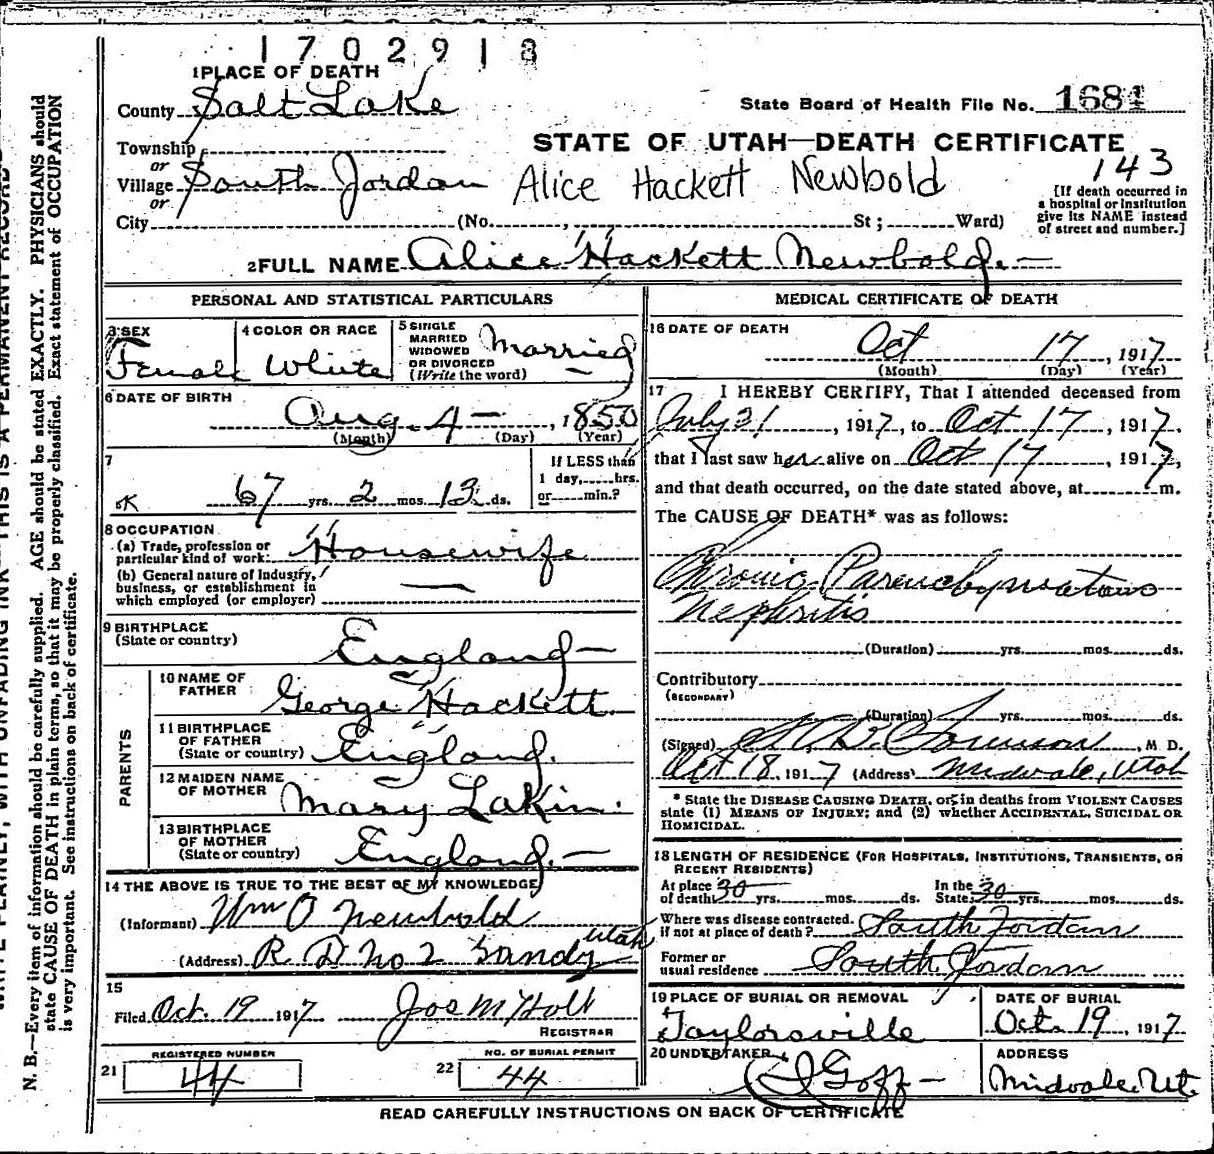 1702918
1 PLACE OF DEATH
County Salt Lake
State Board of Health File No. 1684
Township
or
STATE OF UTAH—DEATH CERTIFICATE
143
Village South Jordan
Alice Hackett Newbold
or
City (No. , St ; Ward)
[If death occurred in
a hospital or institution
give its NAME instead
of street and number.]
2 FULL NAME Alice Hackett Newbold.
PERSONAL AND STATISTICAL PARTICULARS
3 SEX
Female
4 COLOR OR RACE
White
5 SINGLE
MARRIED
WIDOWED
OR DIVORCED
(Write the word)
Married
6 DATE OF BIRTH
Aug. 4 — , 1850
(Month) (Day) (Year)
7
67 yrs. 2 mos. 13 ds.
If LESS than
1 day, hrs.
or min.?
8 OCCUPATION
(a) Trade, profession or
particular kind of work Housewife
(b) General nature of Industry,
business, or establishment in
which employed (or employer)
9 BIRTHPLACE
(State or country) England —
PARENTS
10 NAME OF
FATHER George Hackett
11 BIRTHPLACE
OF FATHER
(State or country) England.
12 MAIDEN NAME
OF MOTHER Mary Lakin.
13 BIRTHPLACE
OF MOTHER
(State or country) England. —
14 THE ABOVE IS TRUE TO THE BEST OF MY KNOWLEDGE
(Informant) Wm O Newbold
(Address) R D No 2 Sandy Utah
15
Filed Oct. 19 1917 Jos M Holt
REGISTRAR
21 REGISTERED NUMBER
44
22 NO. OF BURIAL PERMIT
44
MEDICAL CERTIFICATE OF DEATH
16 DATE OF DEATH
Oct 17 , 1917
(Month) (Day) (Year)
17 I HEREBY CERTIFY, That I attended deceased from
July 21 , 1917, to Oct 17 , 1917,
that I last saw her alive on Oct 17 , 1917,
and that death occurred, on the date stated above, at m.
The CAUSE OF DEATH* was as follows:
Chronic Parenchymatous
Nephritis
(Duration) yrs. mos. ds.
Contributory
(SECONDARY)
(Duration) yrs. mos. ds.
(Signed) Sorenson , M. D.
Oct 18, 1917 (Address) Midvale, Utah
* State the DISEASE CAUSING DEATH, or, in deaths from VIOLENT CAUSES
state (1) MEANS OF INJURY; and (2) whether ACCIDENTAL, SUICIDAL OR
HOMICIDAL.
18 LENGTH OF RESIDENCE (FOR HOSPITALS, INSTITUTIONS, TRANSIENTS, OR
RECENT RESIDENTS)
At place
of death 30 yrs. mos. ds.
In the
State 30 yrs. mos. ds.
Where was disease contracted.
if not at place of death? South Jordan
Former or
usual residence South Jordan
19 PLACE OF BURIAL OR REMOVAL
Taylorsville
DATE OF BURIAL
Oct. 19 , 1917
20 UNDERTAKER
Goff —
ADDRESS
Midvale, Ut.
READ CAREFULLY INSTRUCTIONS ON BACK OF CERTIFICATE
N. B.—Every item of information should be carefully supplied. AGE should be stated EXACTLY. PHYSICIANS should
state CAUSE OF DEATH in plain terms, so that it may be properly classified. Exact statement of OCCUPATION
is very important. See instructions on back of certificate.